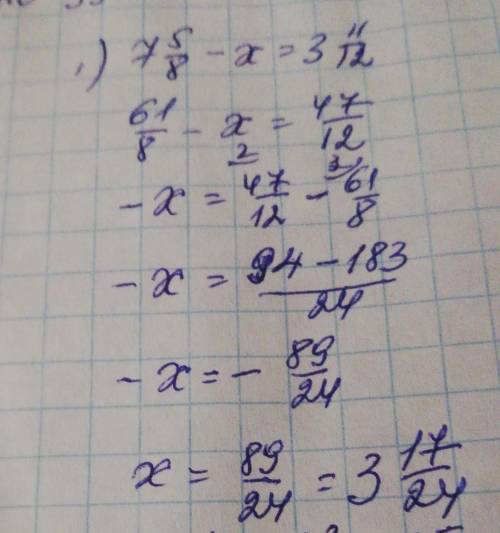 1) 7 5/8 - x = 3 11/12
61/8 - x = 47/12
- x = 47/12 ² - 61/8 ³
- x = (94 - 183)/24
- x = - 89/24
x = 89/24 = 3 17/24